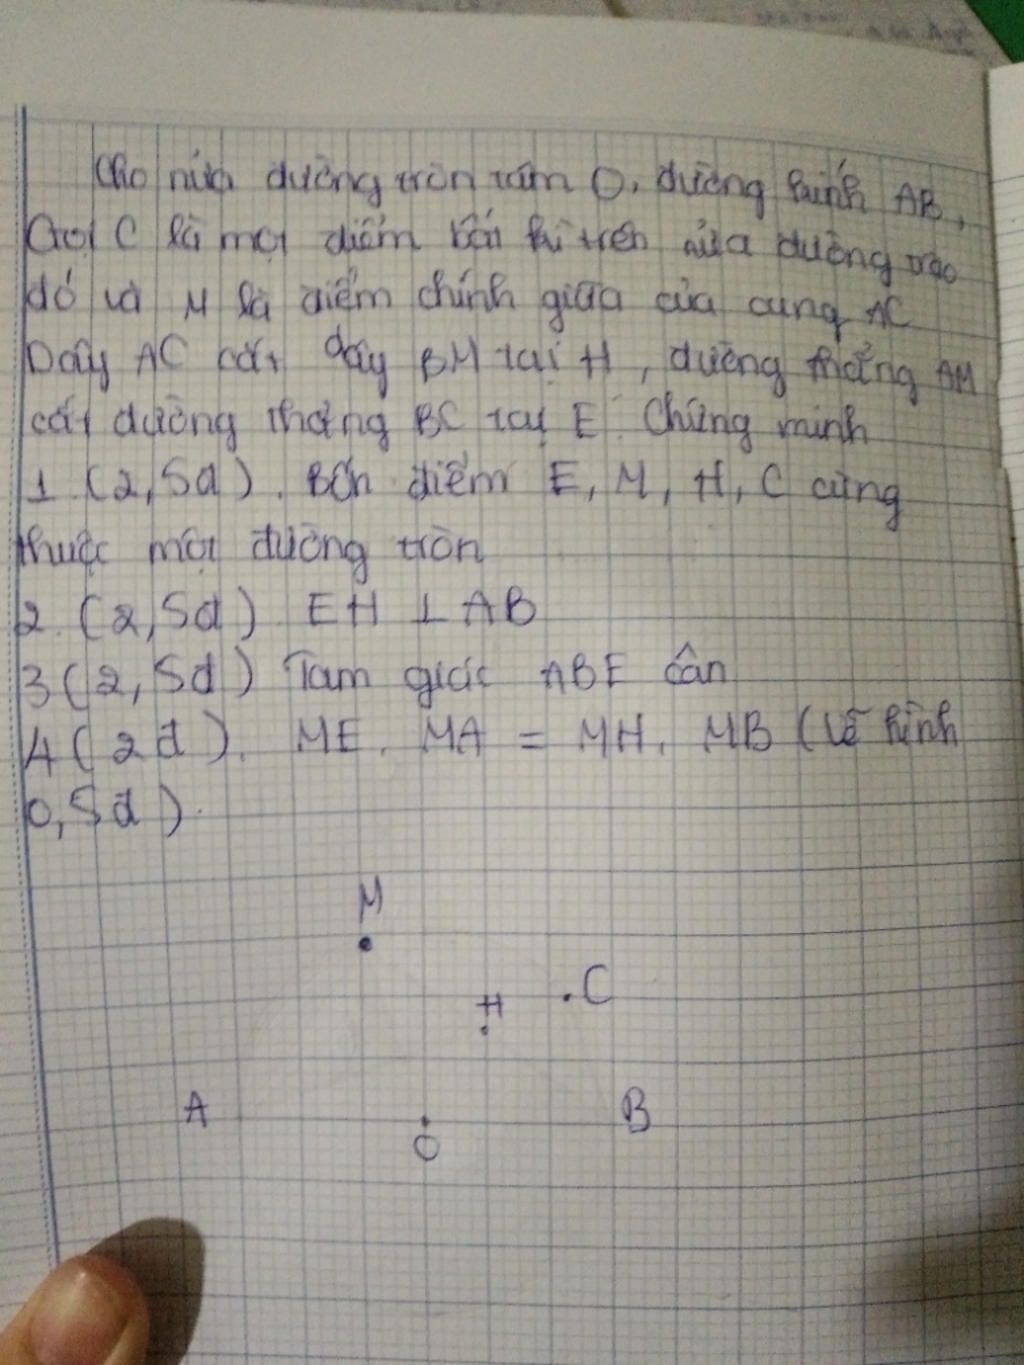 Cho nửa đường tròn tâm O, đường kính AB,
Gọi C là một điểm bất kì trên nửa đường tròn
đó và M là điểm chính giữa của cung AC
Dây AC cắt dây BM tại H, đường thẳng AM
cắt đường thẳng BC tại E. Chứng minh
1. (2,5đ). Bốn điểm E, M, H, C cùng
thuộc một đường tròn
2. (2,5đ) EH ⊥ AB
3 (2,5đ) Tam giác ABE cân
4 (2đ). ME. MA = MH. MB (Vẽ hình
0,5đ).
M
H
C
A
B
O